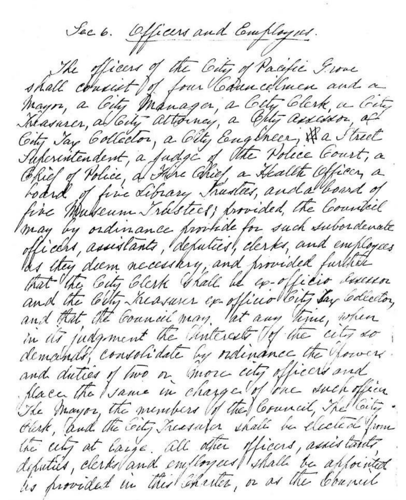 Sec 6. Officers and Employees.
The officers of the City of Pacific Grove
shall consist of four Councilmen and a
Mayor, a City Manager, a City Clerk, a City
Treasurer, a City Attorney, a City Assessor, a
City Tax Collector, a City Engineer, a Street
Superintendent, a Judge of the Police Court, a
Chief of Police, a Fire Chief, a Health Officer, a
board of five Library Trustees, and a board of
five Museum Trustees; provided, the Council
may by ordinance provide for such subordinate
officers, assistants, deputies, clerks, and employees
as they deem necessary, and provided further
that the City Clerk shall be ex-officio assessor
and the City Treasurer ex-officio City Tax Collector,
and that the Council may, at any time, when
in its judgment the interests of the city so
demands, consolidate by ordinance the powers
and duties of two or more city officers and
place the same in charge of one such officer
The Mayor, the members of the Council, The City
Clerk, and the City Treasurer shall be elected from
the city at large, all other officers, assistants
deputies, clerks and employees shall be appointed
as provided in this Charter, or as the Council